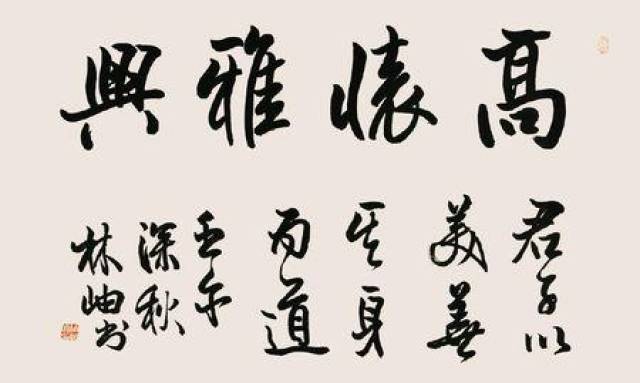 高懷雅興
君子以
美善
其身
為道
深秋
林岫书